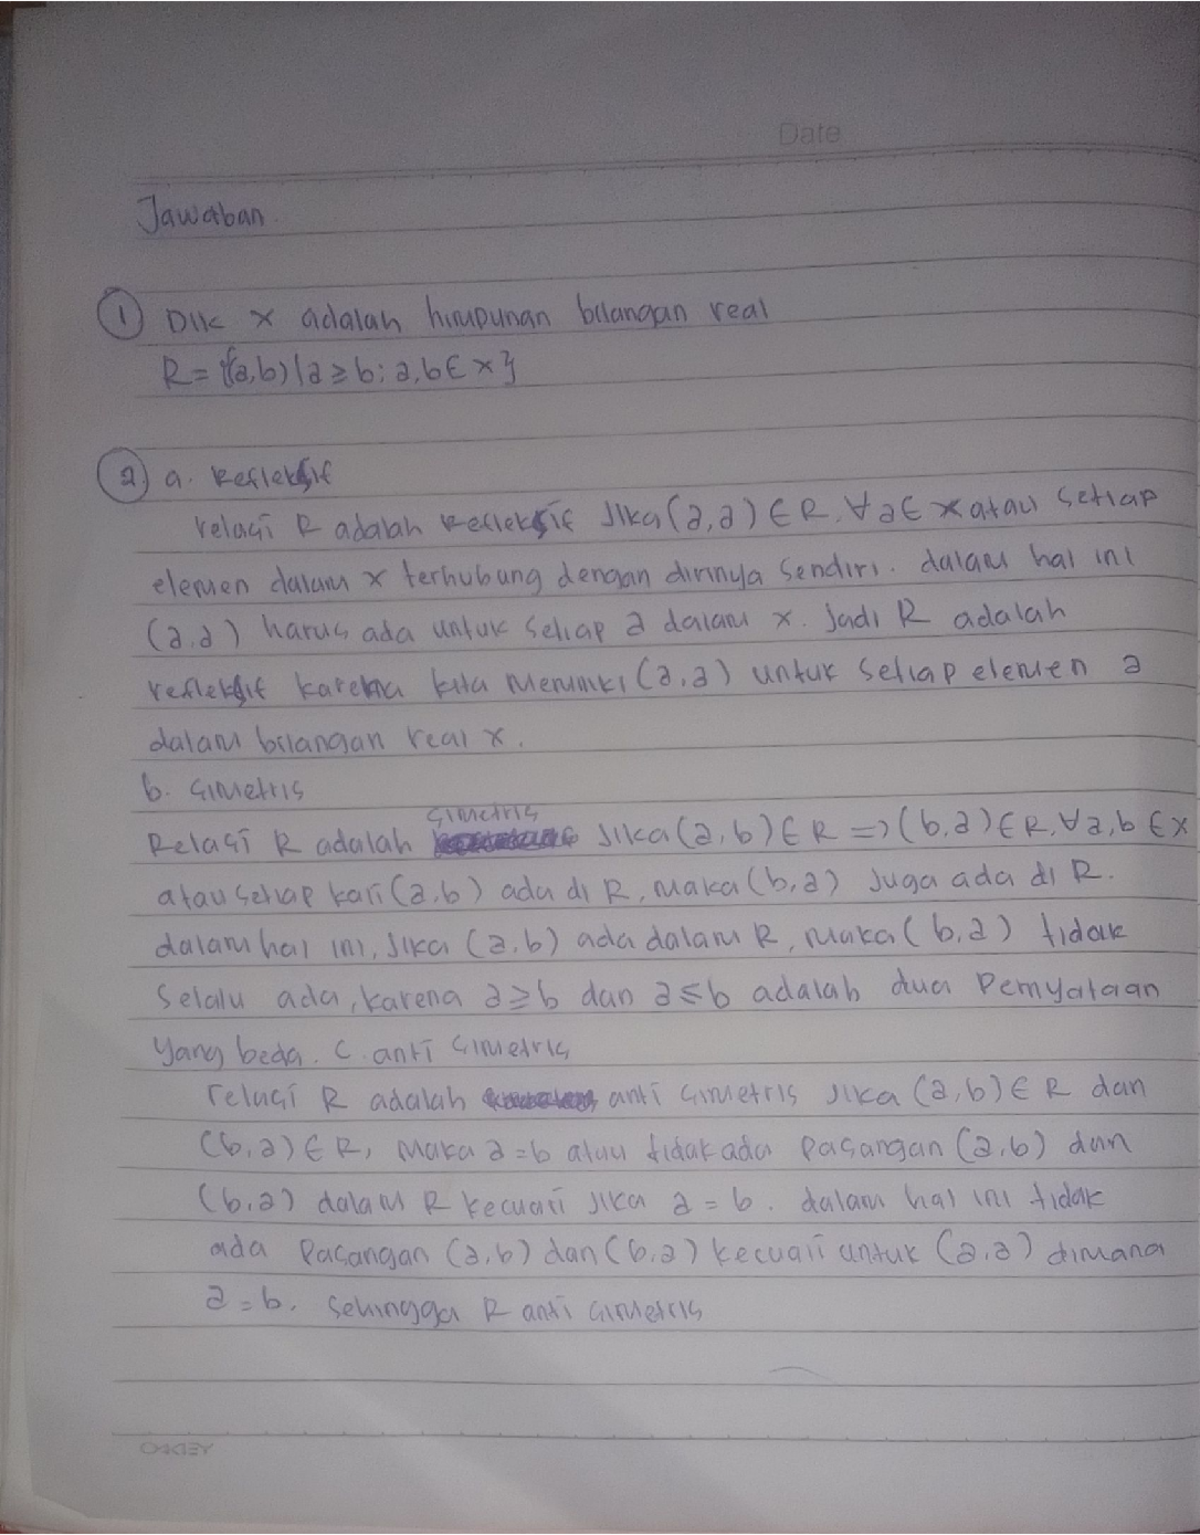 Date
Jawaban.
① Dik x adalah himpunan bilangan real
R = {(a,b) | a ≥ b ; a,b ∈ x}
② a. Refleksif
relasi R adalah Refleksif Jika (a,a) ∈ R, ∀ a ∈ x atau setiap
elemen dalam x terhubung dengan dirinya sendiri. dalam hal ini
(a,a) harus ada untuk setiap a dalam x. Jadi R adalah
refleksif karena kita memiliki (a,a) untuk setiap elemen a
dalam bilangan real x.
b. Simetris
Relasi R adalah simetris Jika (a,b) ∈ R => (b,a) ∈ R, ∀ a,b ∈ x
atau setiap kali (a,b) ada di R, maka (b,a) Juga ada di R.
dalam hal ini, Jika (a,b) ada dalam R, maka (b,a) tidak
selalu ada, karena a ≥ b dan a ≤ b adalah dua Pernyataan
yang beda. C. anti Simetris
relasi R adalah anti simetris Jika (a,b) ∈ R dan
(b,a) ∈ R, maka a = b atau tidak ada Pasangan (a,b) dan
(b,a) dalam R kecuali Jika a = b. dalam hal ini tidak
ada Pasangan (a,b) dan (b,a) kecuali untuk (a,a) dimana
a = b. Sehingga R anti simetris